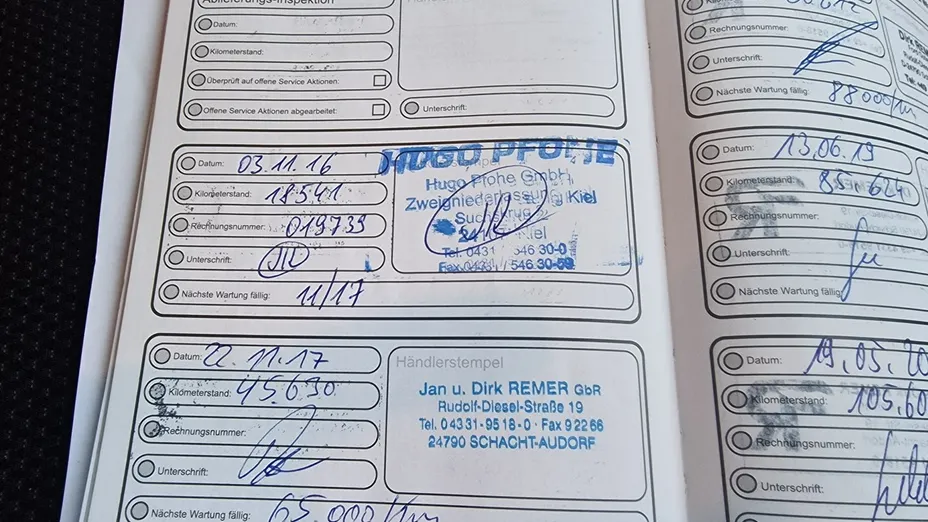 Ablieferungs-Inspektion
Datum:
Kilometerstand:
Überprüft auf offene Service Aktionen:
Offene Service Aktionen abgearbeitet:
Unterschrift:
Datum: 03.11.16
Kilometerstand: 18541
Rechnungsnummer: 019739
Unterschrift:
Nächste Wartung fällig: 11/17
HUGO PFOHE
Hugo Pfohe GmbH
Zweigniederlassung Kiel
Kiel
Tel. 0431 546 30-0
Fax 0431 / 546 30-59
Datum: 22.11.17
Kilometerstand: 45630
Rechnungsnummer:
Unterschrift:
Nächste Wartung fällig: 65000 Km
Händlerstempel
Jan u. Dirk REMER GbR
Rudolf-Diesel-Straße 19
Tel. 04331-9518-0 · Fax 92266
24790 SCHACHT-AUDORF
Rechnungsnummer:
Unterschrift:
Nächste Wartung fällig: 88000 Km
Dirk REMER
Datum: 13.06.19
Kilometerstand:
Rechnungsnummer:
Unterschrift:
Nächste Wartung fällig:
Datum: 19.05.20
Kilometerstand: 105.60
Rechnungsnummer:
Unterschrift: